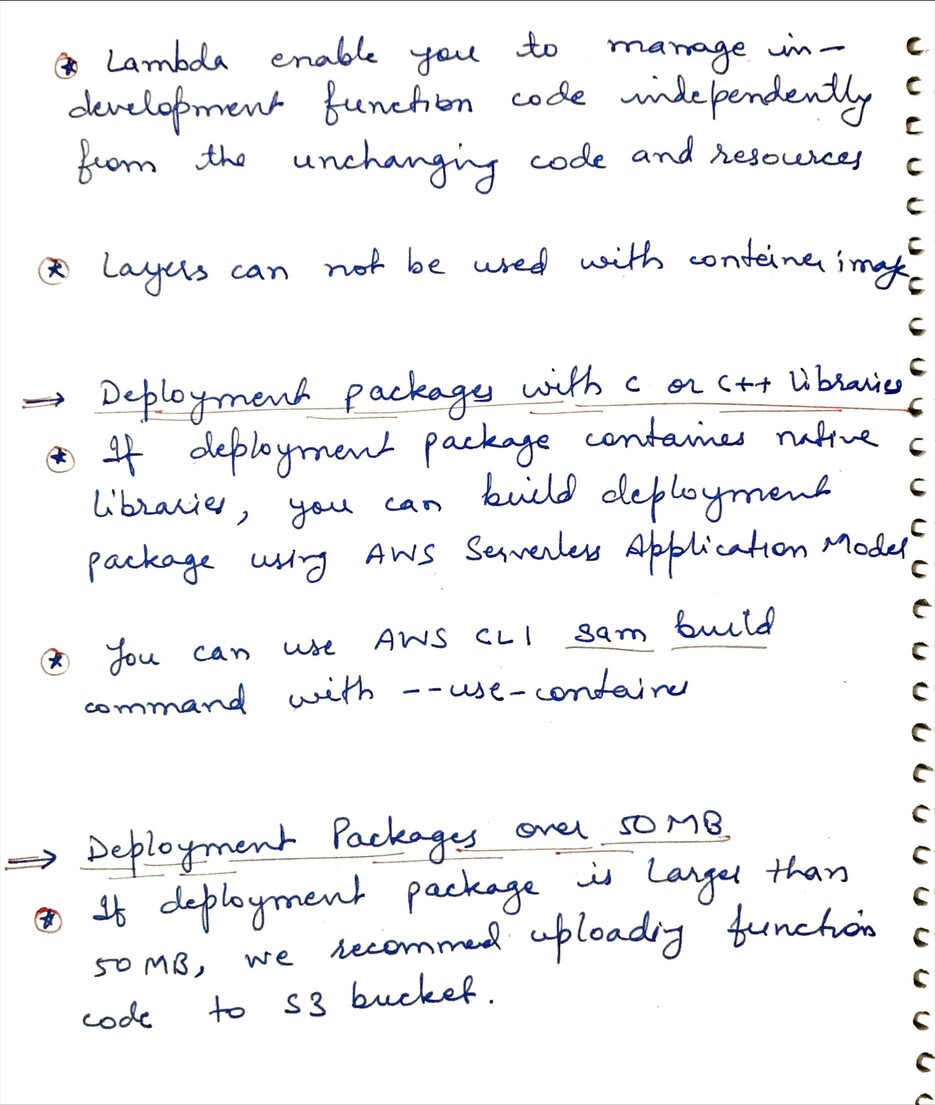 * Lambda enable you to manage in-
development function code independently
from the unchanging code and resources
* Layers can not be used with container image
⇒ Deployment packages with C or C++ Libraries
* If deployment package containes native
Libraries, you can build deployment
package using AWS Serverless Application Model
* You can use AWS CLI sam build
command with --use-container
⇒ Deployment Packages over 50 MB
* If deployment package is Larger than
50 MB, we recommed uploadig function
code to S3 bucket.